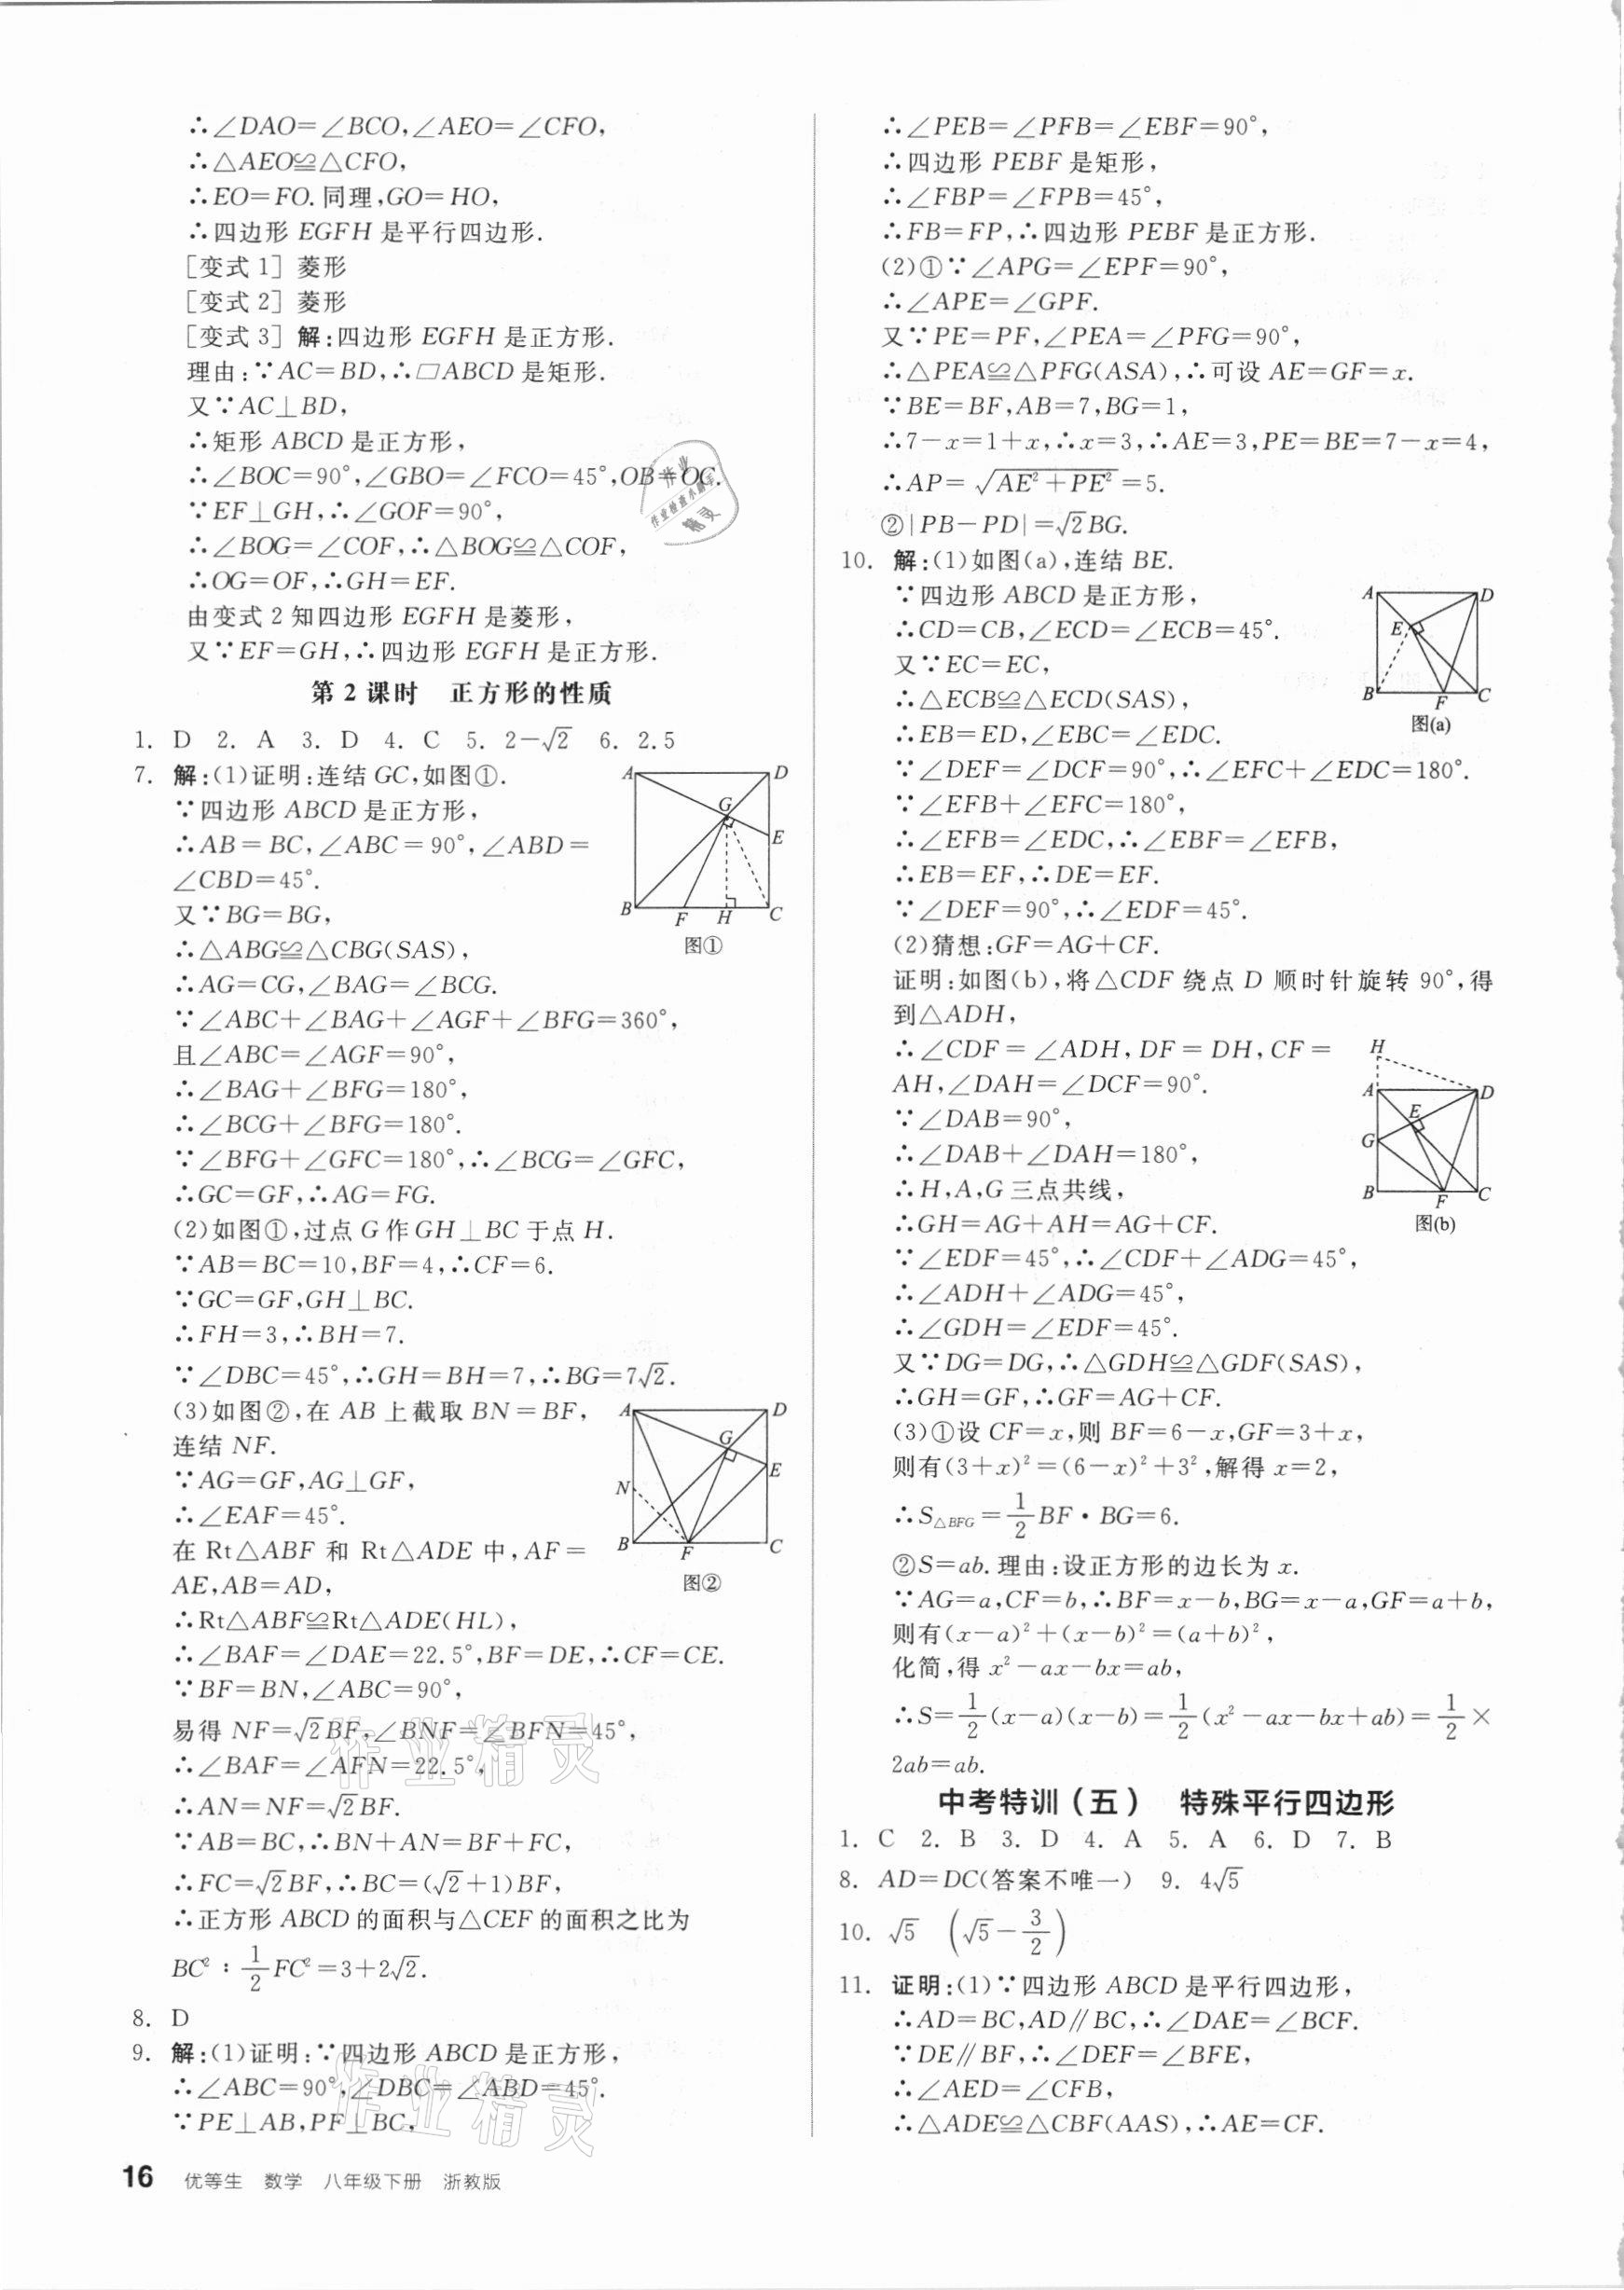 ∴∠DAO=∠BCO,∠AEO=∠CFO,
∴△AEO≌△CFO,
∴EO=FO.同理,GO=HO,
∴四边形 EGFH 是平行四边形.
[变式 1] 菱形
[变式 2] 菱形
[变式 3] 解:四边形 EGFH 是正方形.
理由:∵AC=BD,∴▱ABCD 是矩形.
又∵AC⊥BD,
∴矩形 ABCD 是正方形,
∴∠BOC=90°,∠GBO=∠FCO=45°,OB=OC.
∵EF⊥GH,∴∠GOF=90°,
∴∠BOG=∠COF,∴△BOG≌△COF,
∴OG=OF,∴GH=EF.
由变式 2 知四边形 EGFH 是菱形,
又∵EF=GH,∴四边形 EGFH 是正方形.
第 2 课时 正方形的性质
1. D 2. A 3. D 4. C 5. 2-√2 6. 2.5
7. 解:(1)证明:连结 GC,如图①.
∵四边形 ABCD 是正方形,
∴AB=BC,∠ABC=90°,∠ABD=
∠CBD=45°.
又∵BG=BG,
∴△ABG≌△CBG(SAS),
∴AG=CG,∠BAG=∠BCG.
∵∠ABC+∠BAG+∠AGF+∠BFG=360°,
且∠ABC=∠AGF=90°,
∴∠BAG+∠BFG=180°,
∴∠BCG+∠BFG=180°.
∵∠BFG+∠GFC=180°,∴∠BCG=∠GFC,
∴GC=GF,∴AG=FG.
(2)如图①,过点 G 作 GH⊥BC 于点 H.
∵AB=BC=10,BF=4,∴CF=6.
∵GC=GF,GH⊥BC.
∴FH=3,∴BH=7.
∵∠DBC=45°,∴GH=BH=7,∴BG=7√2.
(3)如图②,在 AB 上截取 BN=BF,
连结 NF.
∵AG=GF,AG⊥GF,
∴∠EAF=45°.
在 Rt△ABF 和 Rt△ADE 中,AF=
AE,AB=AD,
∴Rt△ABF≌Rt△ADE(HL),
∴∠BAF=∠DAE=22.5°,BF=DE,∴CF=CE.
∵BF=BN,∠ABC=90°,
易得 NF=√2BF,∠BNF=∠BFN=45°,
∴∠BAF=∠AFN=22.5°,
∴AN=NF=√2BF.
∵AB=BC,∴BN+AN=BF+FC,
∴FC=√2BF,∴BC=(√2+1)BF,
∴正方形 ABCD 的面积与△CEF 的面积之比为
BC²:1/2FC²=3+2√2.
8. D
9. 解:(1)证明:∵四边形 ABCD 是正方形,
∴∠ABC=90°,∠DBC=∠ABD=45°.
∵PE⊥AB,PF⊥BC,
A D G E B F H C
图①
A D G E N B F C
图②
∴∠PEB=∠PFB=∠EBF=90°,
∴四边形 PEBF 是矩形,
∴∠FBP=∠FPB=45°,
∴FB=FP,∴四边形 PEBF 是正方形.
(2)①∵∠APG=∠EPF=90°,
∴∠APE=∠GPF.
又∵PE=PF,∠PEA=∠PFG=90°,
∴△PEA≌△PFG(ASA),∴可设 AE=GF=x.
∵BE=BF,AB=7,BG=1,
∴7-x=1+x,∴x=3,∴AE=3,PE=BE=7-x=4,
∴AP=√(AE²+PE²)=5.
②|PB-PD|=√2BG.
10. 解:(1)如图(a),连结 BE.
∵四边形 ABCD 是正方形,
∴CD=CB,∠ECD=∠ECB=45°.
又∵EC=EC,
∴△ECB≌△ECD(SAS),
∴EB=ED,∠EBC=∠EDC.
∵∠DEF=∠DCF=90°,∴∠EFC+∠EDC=180°.
∵∠EFB+∠EFC=180°,
∴∠EFB=∠EDC,∴∠EBF=∠EFB,
∴EB=EF,∴DE=EF.
∵∠DEF=90°,∴∠EDF=45°.
(2)猜想:GF=AG+CF.
证明:如图(b),将△CDF 绕点 D 顺时针旋转 90°,得
到△ADH,
∴∠CDF=∠ADH,DF=DH,CF=
AH,∠DAH=∠DCF=90°.
∵∠DAB=90°,
∴∠DAB+∠DAH=180°,
∴H,A,G 三点共线,
∴GH=AG+AH=AG+CF.
∵∠EDF=45°,∴∠CDF+∠ADG=45°,
∴∠ADH+∠ADG=45°,
∴∠GDH=∠EDF=45°.
又∵DG=DG,∴△GDH≌△GDF(SAS),
∴GH=GF,∴GF=AG+CF.
(3)①设 CF=x,则 BF=6-x,GF=3+x,
则有(3+x)²=(6-x)²+3²,解得 x=2,
∴S△BFG=1/2BF·BG=6.
②S=ab.理由:设正方形的边长为 x.
∵AG=a,CF=b,∴BF=x-b,BG=x-a,GF=a+b,
则有(x-a)²+(x-b)²=(a+b)²,
化简,得 x²-ax-bx=ab,
∴S=1/2(x-a)(x-b)=1/2(x²-ax-bx+ab)=1/2×
2ab=ab.
A D E B F C
图(a)
H A D E G B F C
图(b)
中考特训(五) 特殊平行四边形
1. C 2. B 3. D 4. A 5. A 6. D 7. B
8. AD=DC(答案不唯一) 9. 4√5
10. √5 (√5-3/2)
11. 证明:(1)∵四边形 ABCD 是平行四边形,
∴AD=BC,AD∥BC,∴∠DAE=∠BCF.
∵DE∥BF,∴∠DEF=∠BFE,
∴∠AED=∠CFB,
∴△ADE≌△CBF(AAS),∴AE=CF.
作业精灵
作业精灵
16 优等生 数学 八年级下册 浙教版